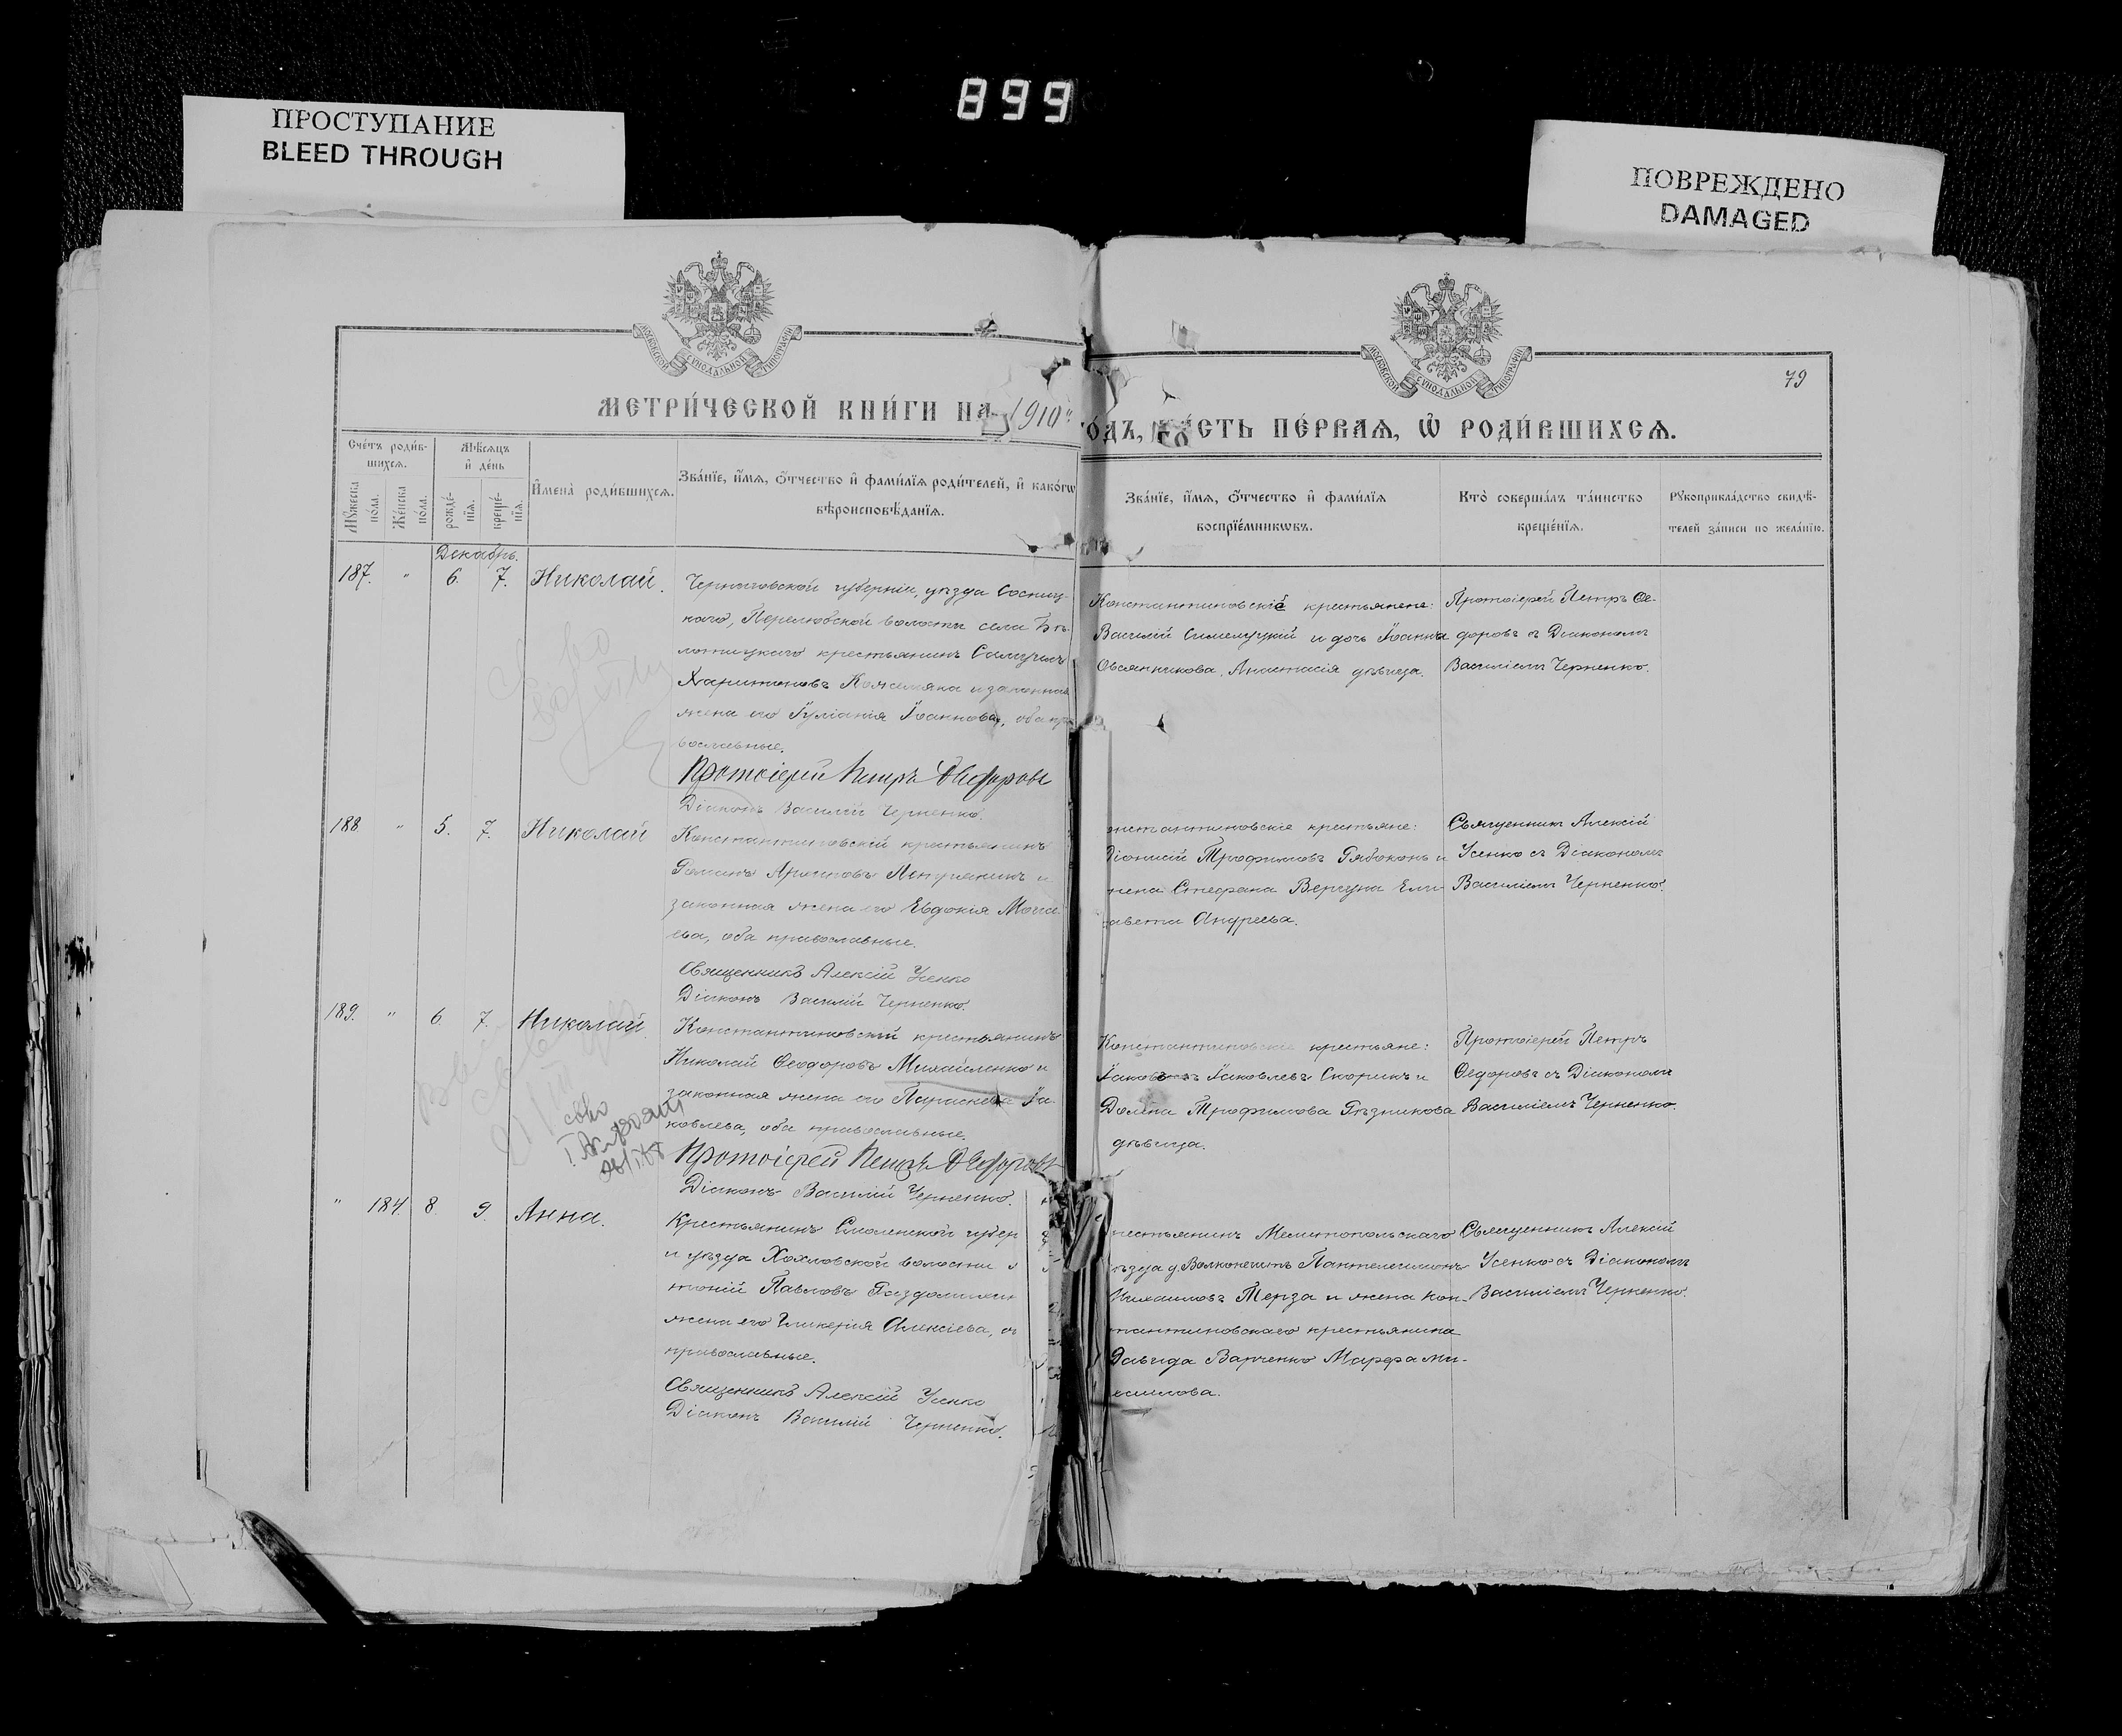 899
ПРОСТУПАНИЕ
BLEED THROUGH
ПОВРЕЖДЕНО
DAMAGED
МОСКОВСКОЙ СѴНОДАЛЬНОЙ ТИПОГРАФІИ
МОСКОВСКОЙ СѴНОДАЛЬНОЙ ТИПОГРАФІИ
79
МЕТРИ́ЧЕСКОЙ КНИ́ГИ НА 1910
го́дъ, ча́сть пе́рваѧ, ѡ҆ роди́вшихсѧ.
Сче́тъ роди́вшихсѧ.
Мꙋ́жеска по́ла.
Же́нска по́ла.
Мѣ́сѧцъ и҆ де́нь
рожде́нїѧ.
креще́нїѧ.
И҆мена̀ роди́вшихсѧ.
Зва́нїе, и҆́мѧ, ѻ҆́тчество и҆ фами́лїѧ роди́телей, и҆ како́гѡ
вѣроисповѣ́данїѧ.
Зва́нїе, и҆́мѧ, ѻ҆́тчество и҆ фами́лїѧ
воспрїе́мникѡвъ.
Кто̀ соверша́лъ та́инство
креще́нїѧ.
Рꙋкоприкла́дство свидѣ́-
телей за́писи по жела́нїю.
Декабрь.
187. " 6. 7. Николай.
Черниговской губерніи, уѣзда Сосниц-
каго, Перелюбской волости села
крестьянинъ Самуилъ
Харитоновъ Кожемяка и законная
жена его Іуліанія Іоаннова, оба пра-
вославные.
Протоіерей Петръ Ѳедоровъ
Діаконъ Василій Черненко.
Константиновскіе крестьяне:
Василій и дочь Іоанна
Овсянникова, Анастасія дѣвица.
Протоіерей Петръ Ѳе-
доровъ съ Діакономъ
Василіемъ Черненко.
188 " 5. 7. Николай
Константиновскій крестьянинъ
Романъ и
законная жена его Евдокія Моисе-
ева, оба православные.
Священникъ Алексій Усенко
Діаконъ Василій Черненко.
онстантиновскіе крестьяне:
Діонисій Трофимовъ Рябоконь и
жена Стефана Вергуна Ели-
завета Андреева.
Священникъ Алексій
Усенко съ Діакономъ
Василіемъ Черненко.
189. " 6. 7. Николай.
Константиновскій крестьянинъ
Николай Ѳеодоровъ Михайленко и
законная жена его Параскева Іа-
ковлева, оба православные.
Протоіерей Петръ Ѳедоровъ
Діаконъ Василій Черненко.
Константиновскіе крестьяне:
Іаковъ Іаковлевъ Скорикъ и
Трофимова Рѣзникова
дѣвица.
Протоіерей Петръ
Ѳедоровъ съ Діакономъ
Василіемъ Черненко.
" 184. 8. 9. Анна.
Крестьянинъ Смоленской губер
и уѣзда Хохловской волости
тоній Павловъ
жена его Гликерія Алексіева,
православные.
Священникъ Алексій Усенко
Діаконъ Василій Черненко.
рестьянинъ Мелитопольскаго
уѣзда д. Пантелеимонъ
Михаиловъ Терза и жена Кон-
стантиновскаго крестьянина
Давида Варченко Марфа Ми-
хаилова.
Священникъ Алексій
Усенко съ Діакономъ
Василіемъ Черненко.